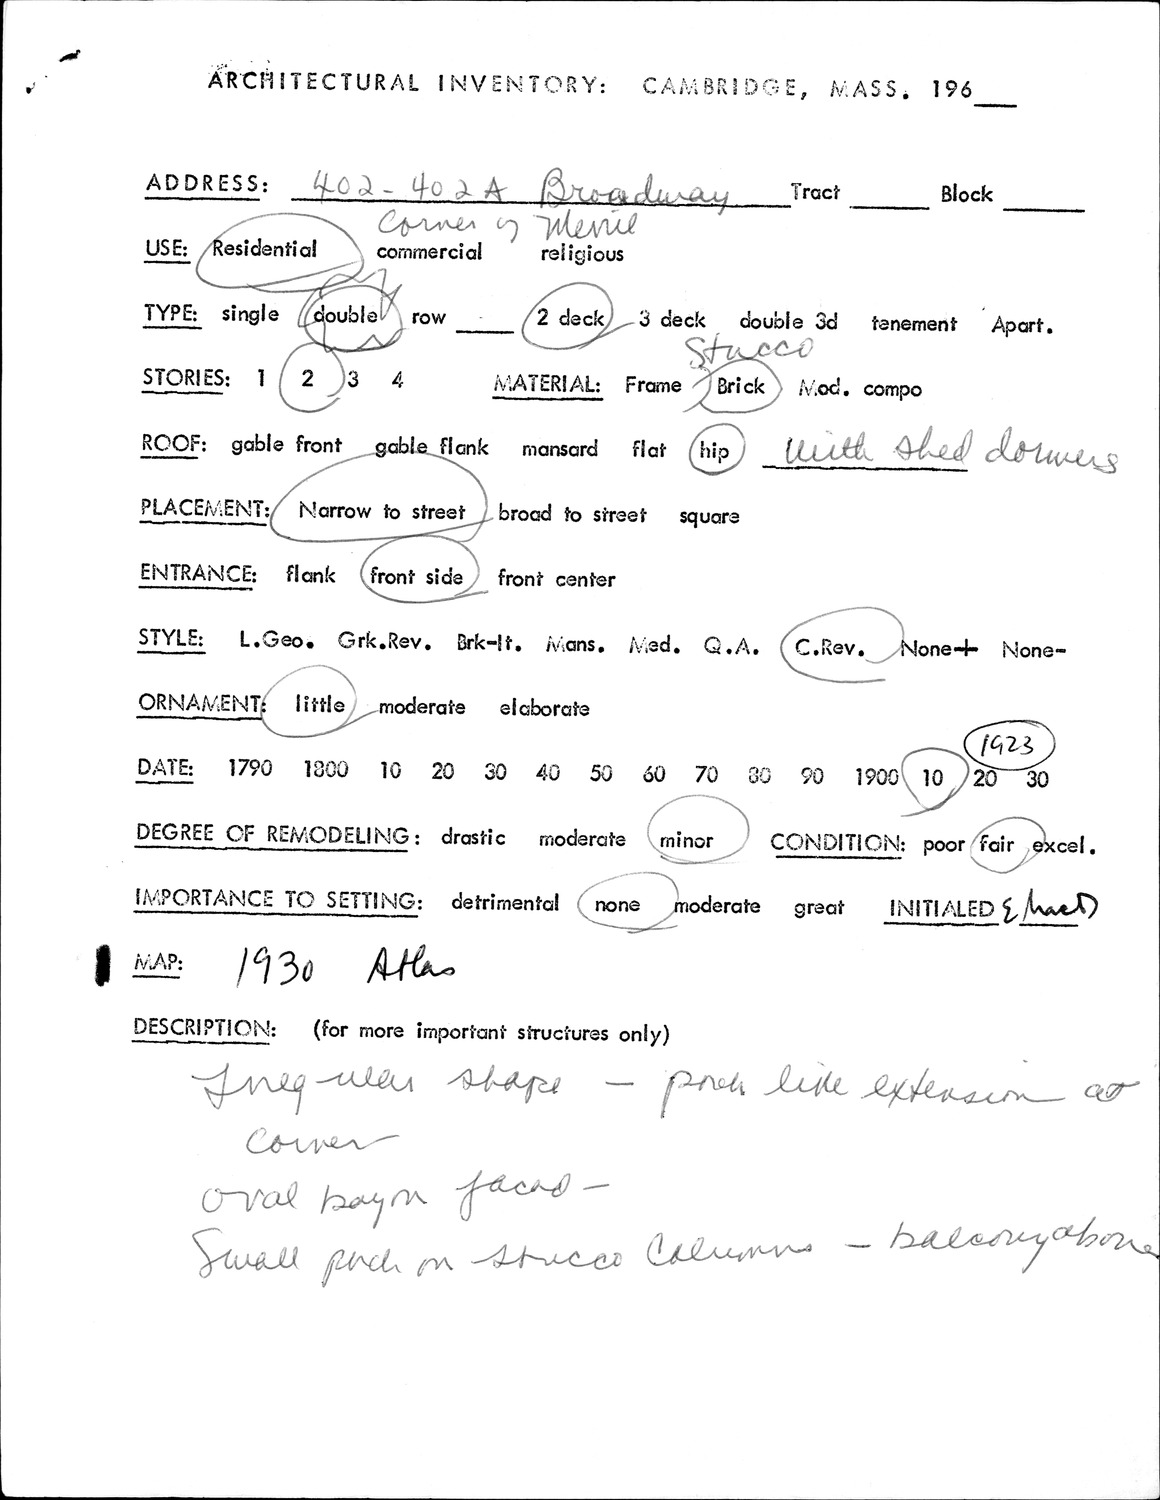 ARCHITECTURAL INVENTORY: CAMBRIDGE, MASS. 196___
ADDRESS: 402-402A Broadway Tract ____ Block ____
Corner of
USE: Residential commercial religious
TYPE: single double row ____ 2 deck 3 deck double 3d tenement Apart.
Stucco
STORIES: 1 2 3 4 MATERIAL: Frame Brick Mod. compo
ROOF: gable front gable flank mansard flat hip with shed dormers
PLACEMENT: Narrow to street broad to street square
ENTRANCE: flank front side front center
STYLE: L.Geo. Grk.Rev. Brk-It. Mans. Med. Q.A. C.Rev. None+ None-
ORNAMENT: little moderate elaborate
1923
DATE: 1790 1800 10 20 30 40 50 60 70 80 90 1900 10 20 30
DEGREE OF REMODELING: drastic moderate minor CONDITION: poor fair excel.
IMPORTANCE TO SETTING: detrimental none moderate great INITIALED
MAP: 1930 Atlas
DESCRIPTION: (for more important structures only)
Irregular shape — porch like extension at
corner
Oval bay on facad —
Small porch on stucco columns — balcony above